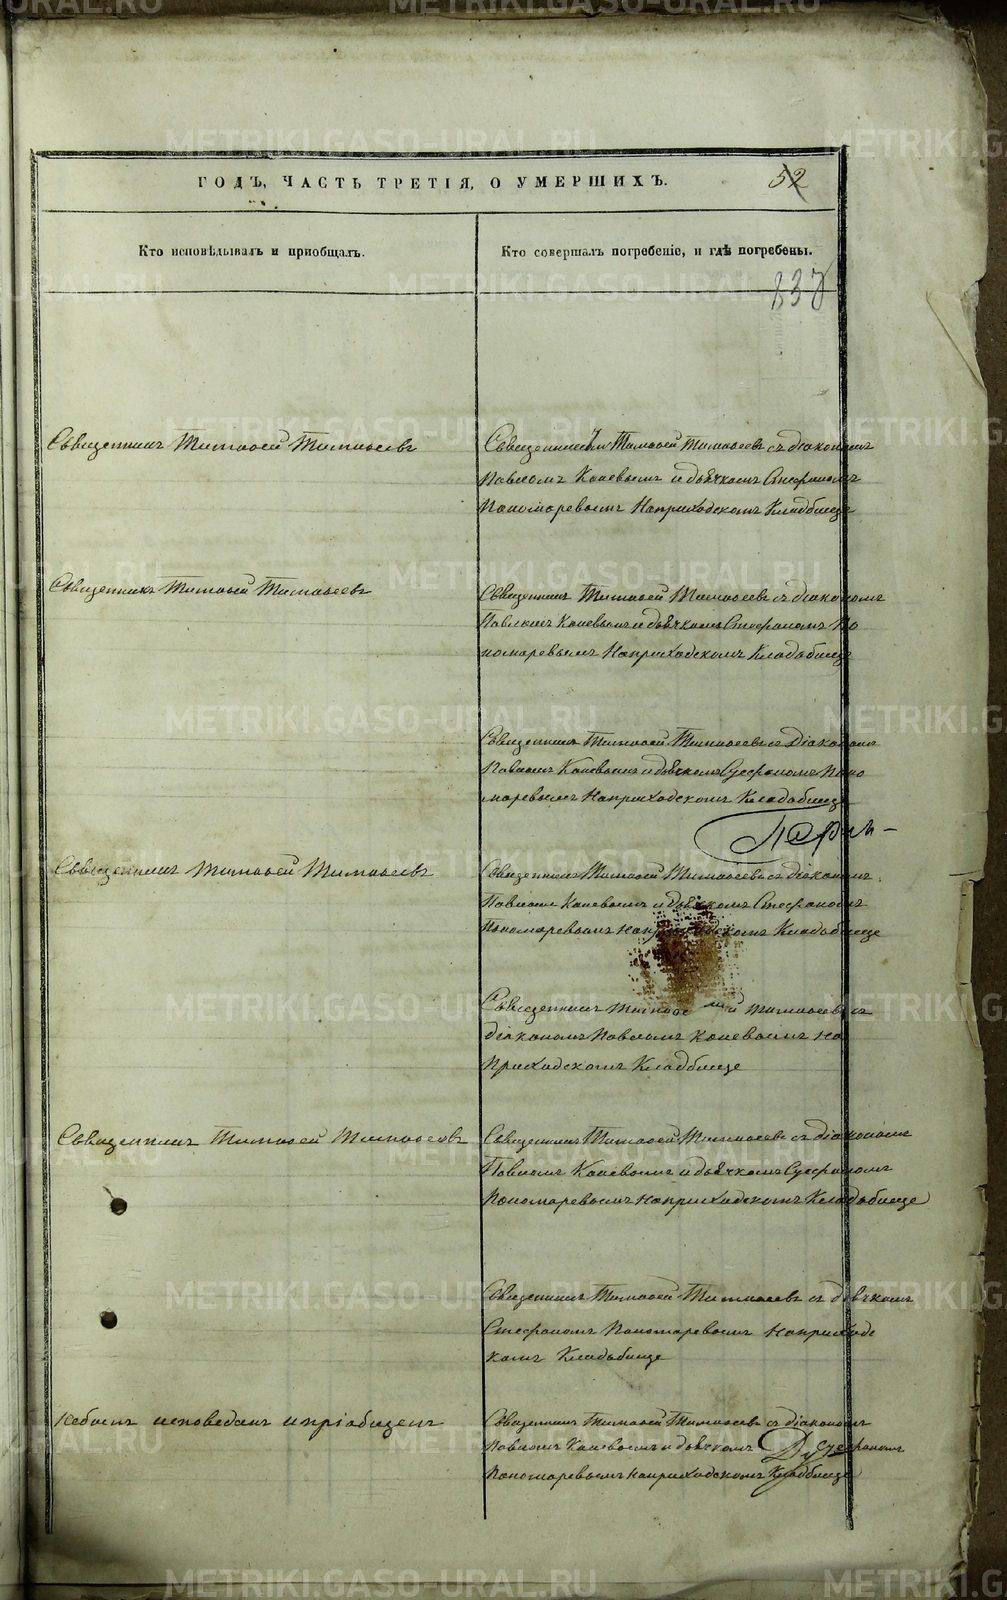 ГОДЪ, ЧАСТЬ ТРЕТІЯ, О УМЕРШИХЪ.
52
Кто исповѣдывалъ и пріобщалъ.
Кто совершалъ погребеніе, и гдѣ погребены.
837
Священникъ Тимофей Тимофеевъ
Священникъ Тимофей Тимофеевъ съ діакономъ
Павломъ Каневымъ и дьячкомъ Стефаномъ
Пономаревымъ На приходскомъ Кладбище
Священникъ Тимофей Тимофеевъ
Священникъ Тимофей Тимофеевъ съ діакономъ
Павломъ Каневымъ и дьячкомъ Стефаномъ По
номаревымъ На приходскомъ Кладбище
Священникъ Тимофей Тимофеевъ съ Діакономъ
Павломъ Каневымъ и дьячкомъ Стефаномъ Поно
маревымъ На приходскомъ Кладбище
Священникъ Тимофей Тимофеевъ
Священникъ Тимофей Тимофеевъ съ діакономъ
Павломъ Каневымъ и дьячкомъ Стефаномъ
Пономаревымъ На приходскомъ Кладбище
Священникъ Тимофей Тимофеевъ съ
діакономъ Павломъ Каневымъ На
приходскомъ Кладбище
Священникъ Тимофей Тимофеевъ
Священникъ Тимофей Тимофеевъ съ діакономъ
Павломъ Каневымъ и дьячкомъ Стефаномъ
Пономаревымъ На приходскомъ Кладбище
Священникъ Тимофей Тимофеевъ съ дьячкомъ
Стефаномъ Пономаревымъ На приходс
комъ Кладбище
Не былъ исповеданъ и пріобщенъ
Священникъ Тимофей Тимофеевъ съ діакономъ
Павломъ Каневымъ и дьячкомъ Стефаномъ
Пономаревымъ На приходскомъ Кладбище
METRIKI.GASO-URAL.RU